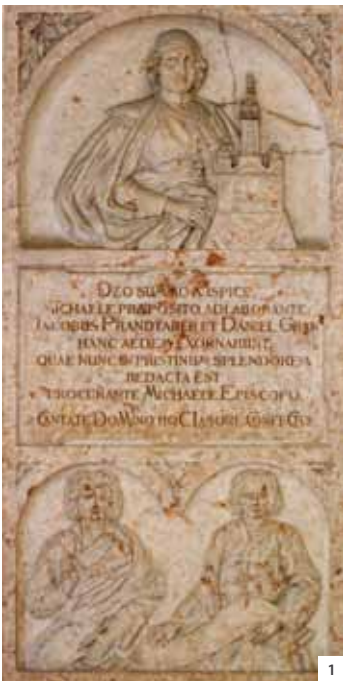 DEO SUMMO AUSPICE
MICHAELE PRAEPOSITO ADLABORANTE
IACOBUS PRANDTAUER ET DANIEL GRAN
HANC AEDEM EXORNARUNT,
QUAE NUNC IN PRISTINUM SPLENDOREM
REDACTA EST
PROCURANTE MICHAELE EPISCOPO.
CANTATE DOMINO
1